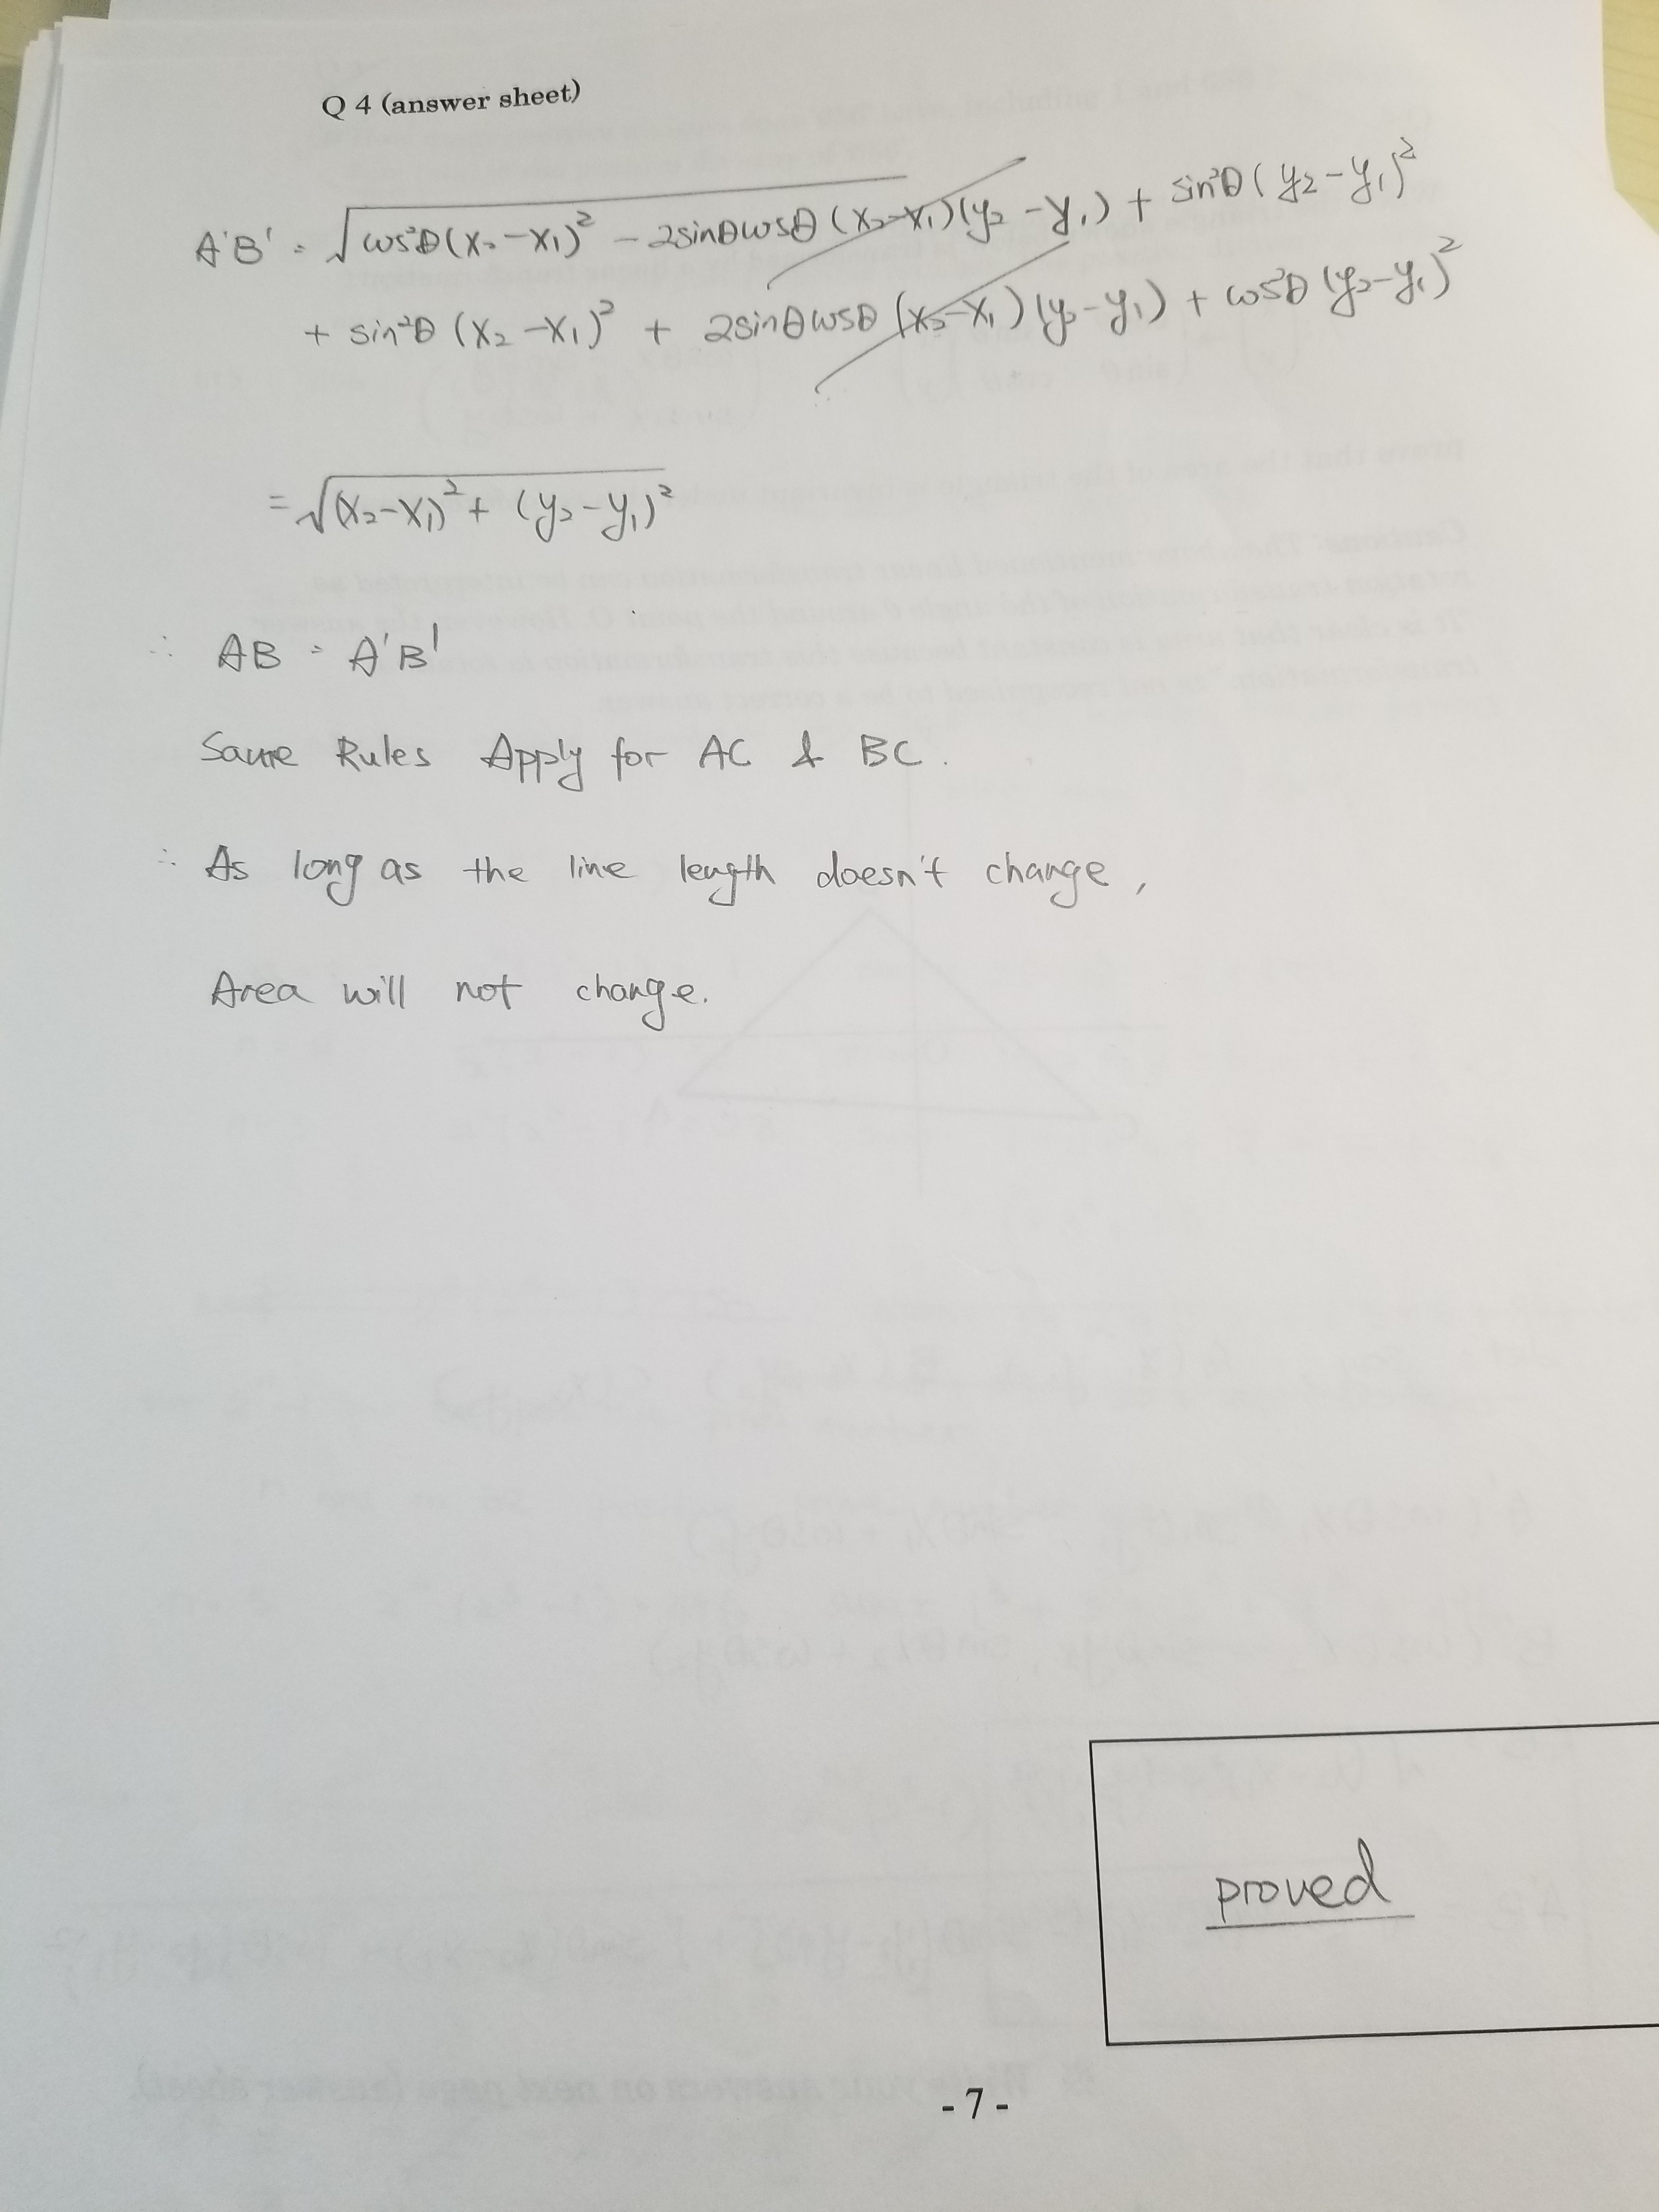 Q 4 (answer sheet)
A'B' = √cos²θ(x₂-x₁)² - 2sinθcosθ(x₂-x₁)(y₂-y₁) + sin²θ(y₂-y₁)²
+ sin²θ(x₂-x₁)² + 2sinθcosθ(x₂-x₁)(y₂-y₁) + cos²θ(y₂-y₁)²
= √(x₂-x₁)² + (y₂-y₁)²
∴ AB = A'B'
Same Rules Apply for AC & BC.
∴ As long as the line length doesn't change,
Area will not change.
proved
- 7 -